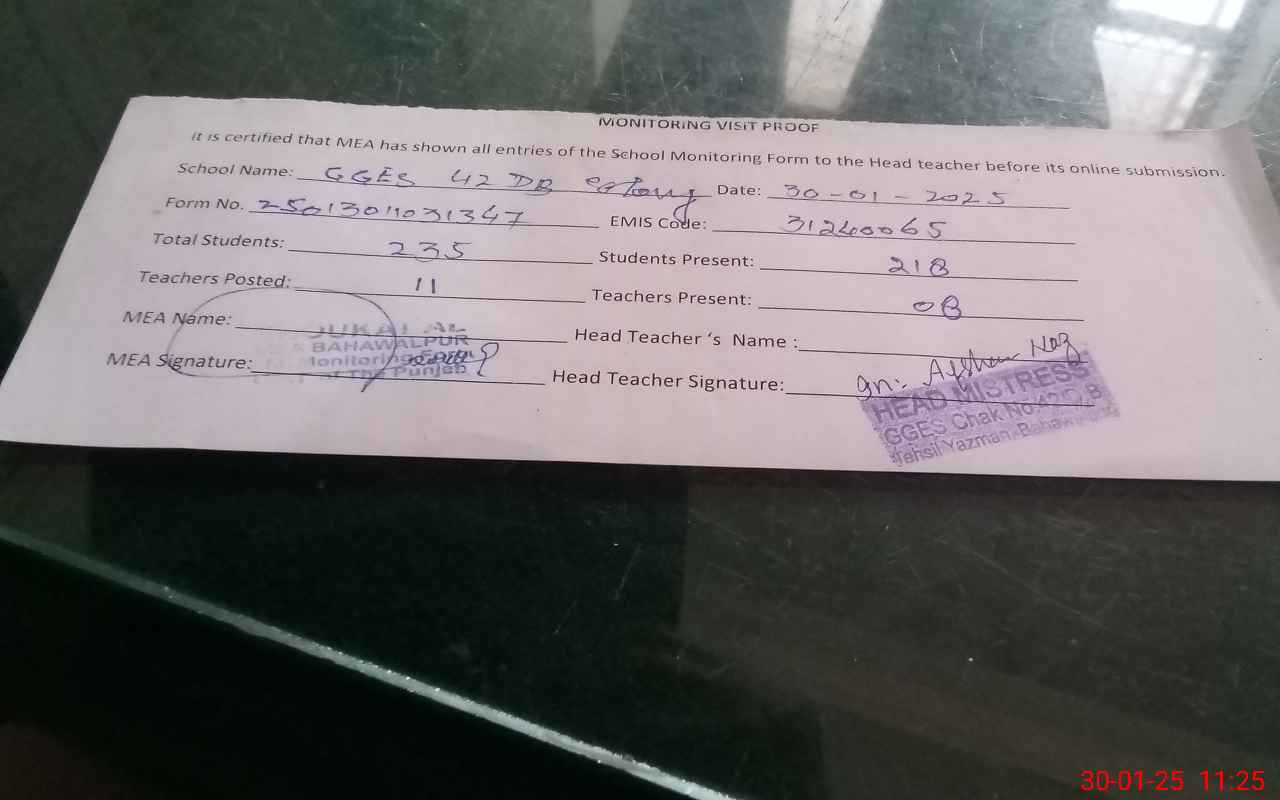 MONITORING VISIT PROOF
It is certified that MEA has shown all entries of the School Monitoring Form to the Head teacher before its online submission.
School Name: GGES 42 DB Date: 30-01-2025
Form No. 2501301031347 EMIS Code: 31240065
Total Students: 235 Students Present: 218
Teachers Posted: 11 Teachers Present: 08
MEA Name: Head Teacher 's Name :
BAHAWALPUR
Monitoring
of The Punjab
MEA Signature: Head Teacher Signature:
HEAD MISTRESS
GGES Chak No
Tehsil Yazman
30-01-25 11:25